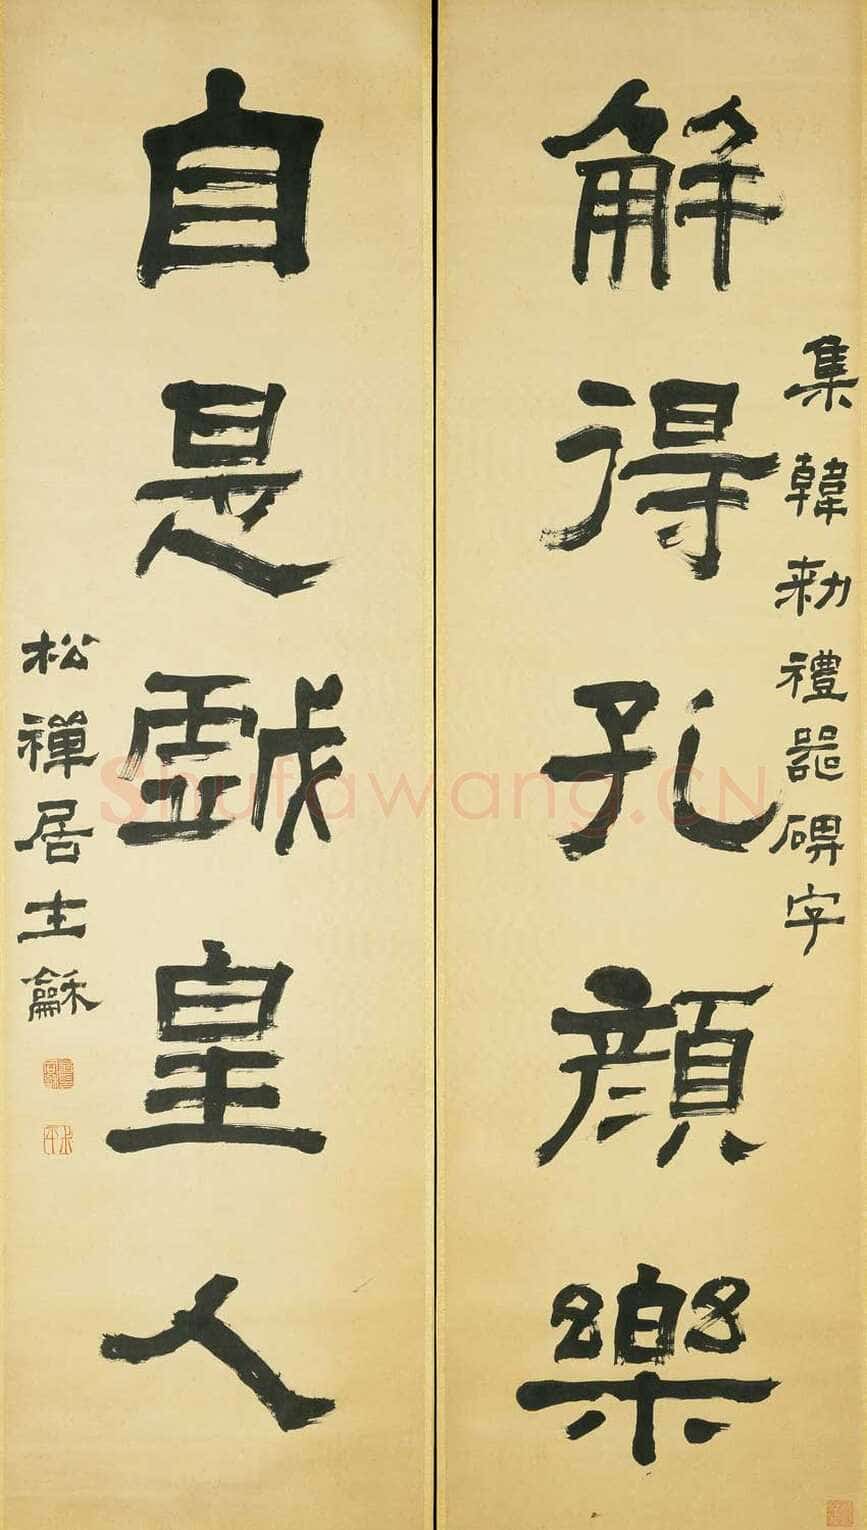 集韓勑禮器碑字
解得孔顏樂
自是戲皇人
松禪居士龢
Shufawang.CN